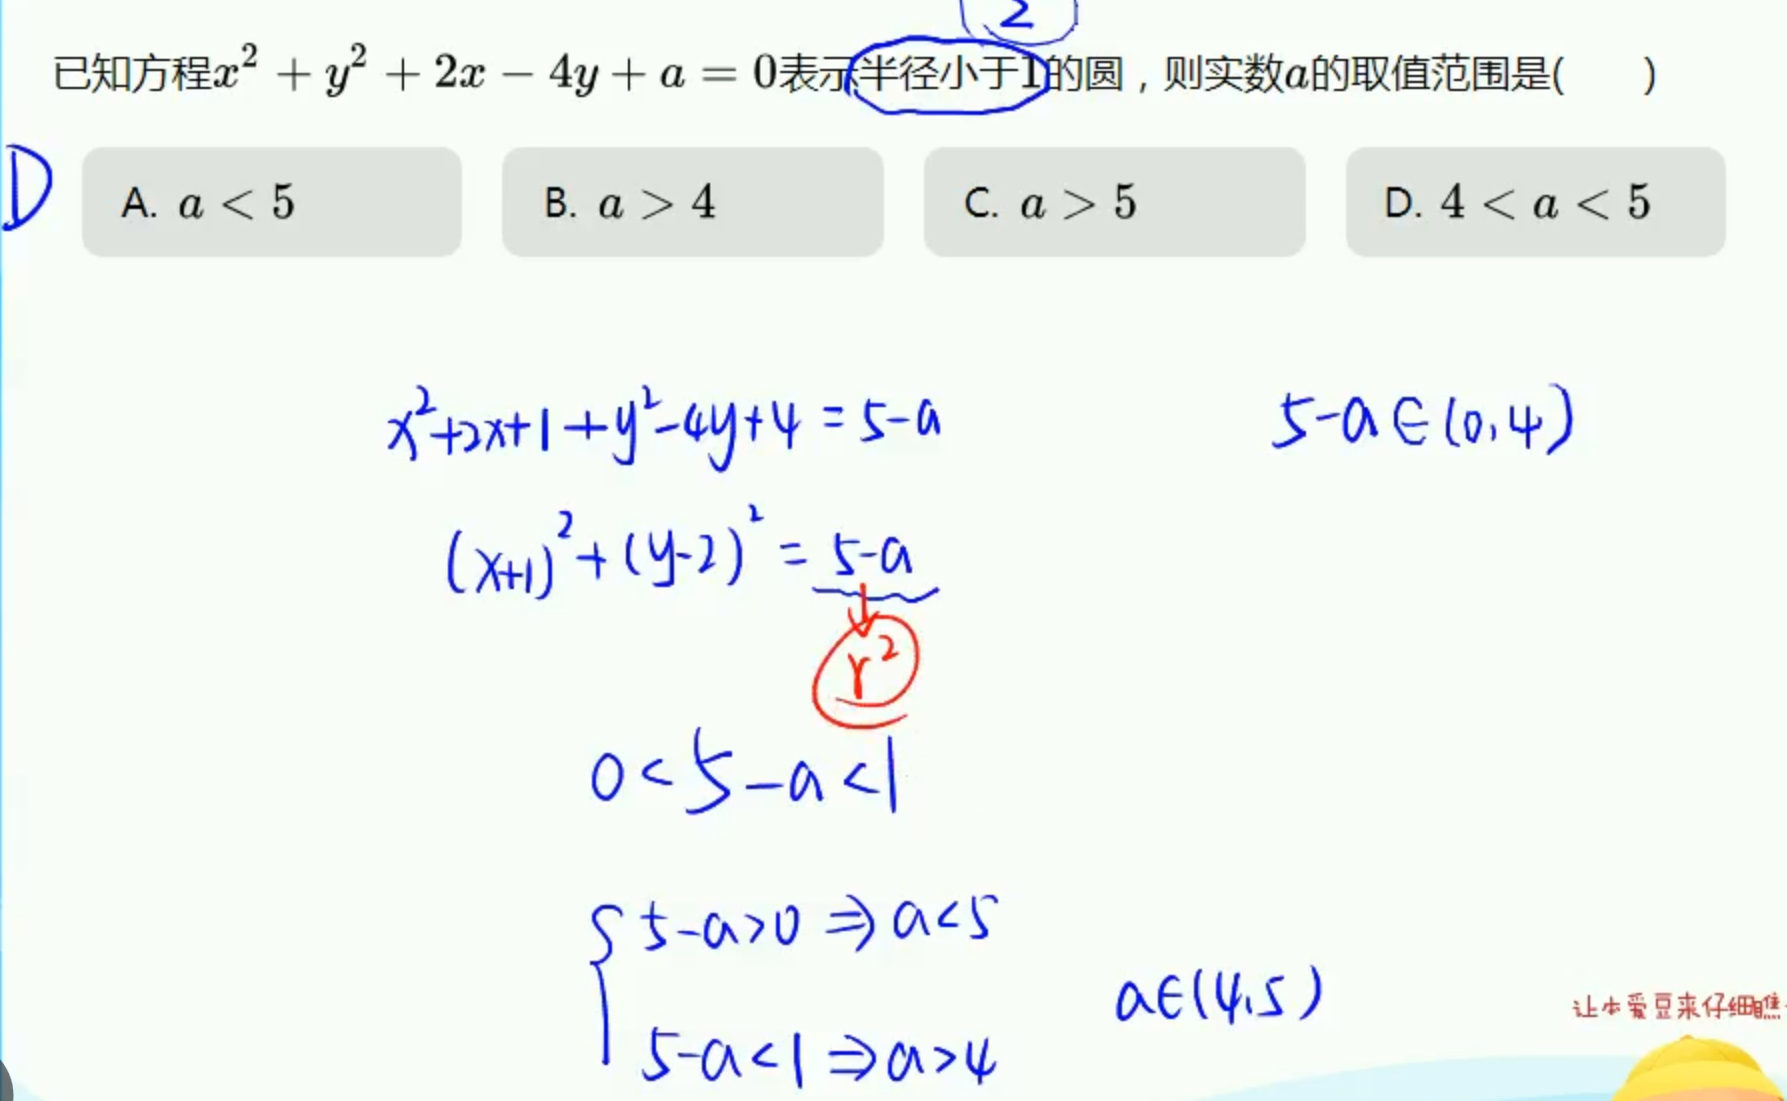 2
已知方程x² + y² + 2x − 4y + a = 0表示半径小于1的圆，则实数a的取值范围是(　　)
D
A. a < 5
B. a > 4
C. a > 5
D. 4 < a < 5
x²+2x+1+y²-4y+4=5-a
5-a∈(0,4)
(x+1)²+(y-2)²=5-a
r²
0<5-a<1
{5-a>0⇒a<5
5-a<1⇒a>4
a∈(4,5)
让本爱豆来仔细瞧